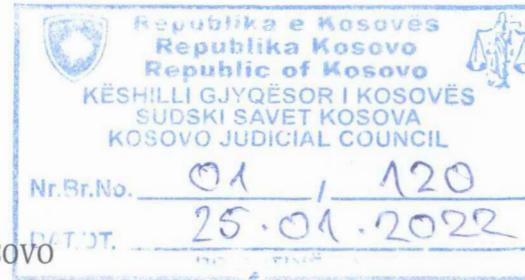 Republika e Kosovës
Republika Kosovo
Republic of Kosovo
KËSHILLI GJYQËSOR I KOSOVËS
SUDSKI SAVET KOSOVA
KOSOVO JUDICIAL COUNCIL
Nr.Br.No. 01 / 120
25.01.2022